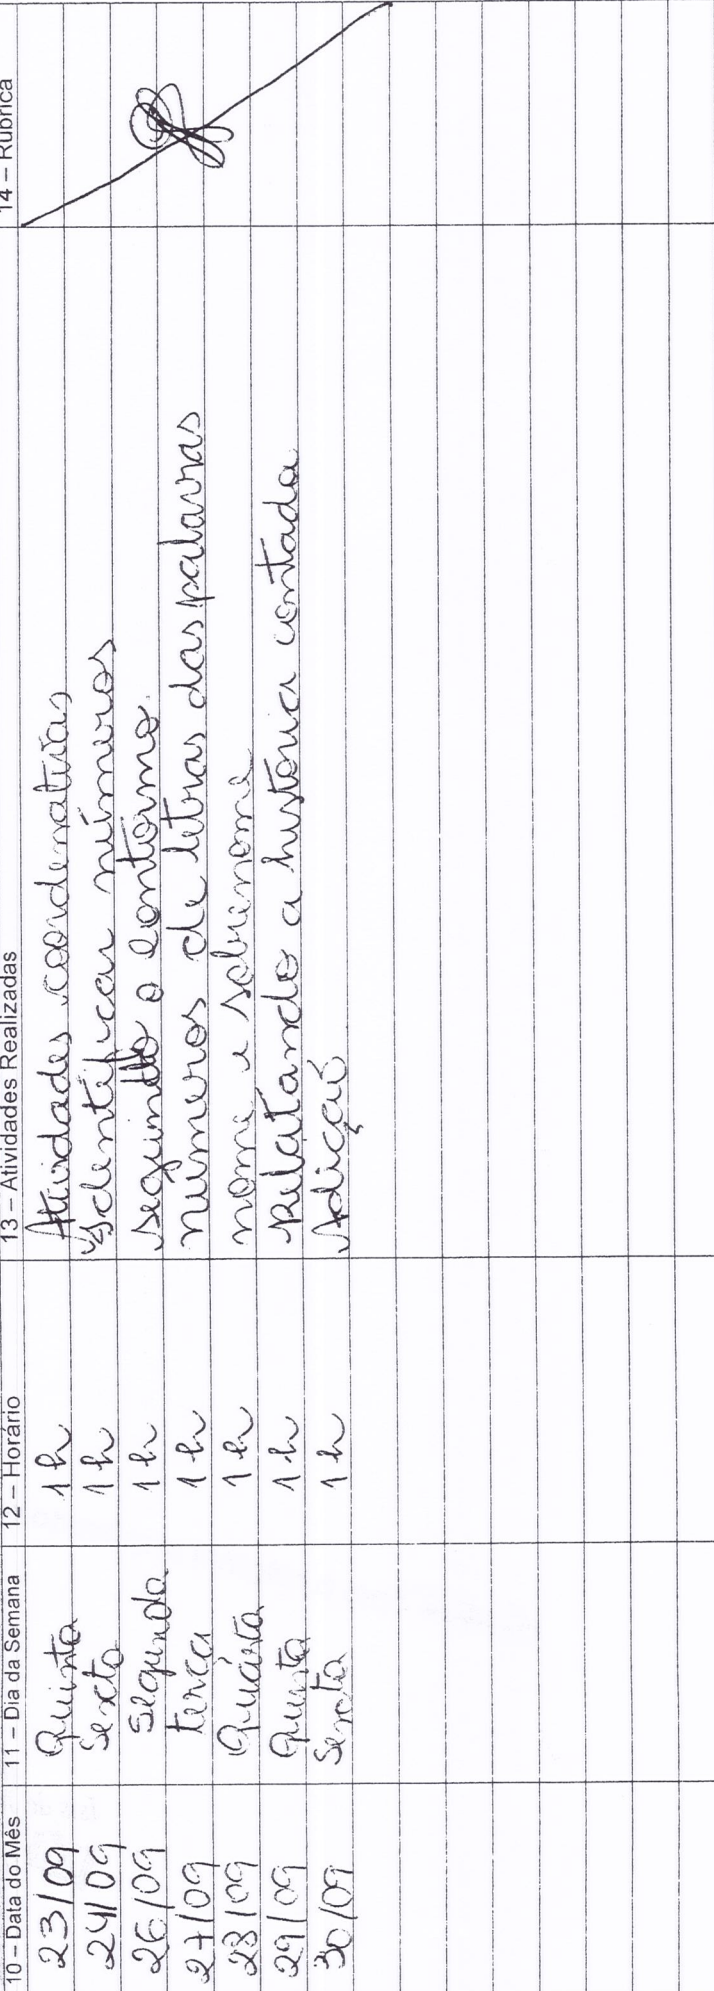 10 – Data do Mês 11 – Dia da Semana 12 – Horário 13 – Atividades Realizadas 14 – Rubrica
23/09 Quinta 1h Atividades coordenativas
24/09 Sexta 1h Identificar números
26/09 Segunda 1h seguindo o contorno.
27/09 terca 1h números de letras das palavras
28/09 Quárta 1h nome e sobrenome
29/09 Quinta 1h Relatando a história contada
30/09 Sexta 1h Adiçaõ